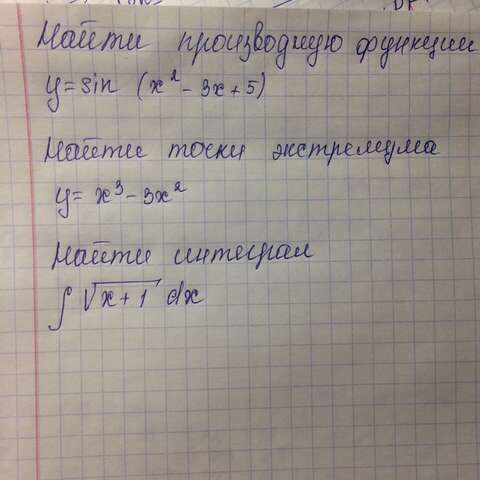 Найти производную функции
y = sin (x² - 3x + 5)
Найти точки экстремума
y = x³ - 3x²
Найти интеграл
∫ √(x + 1) dx